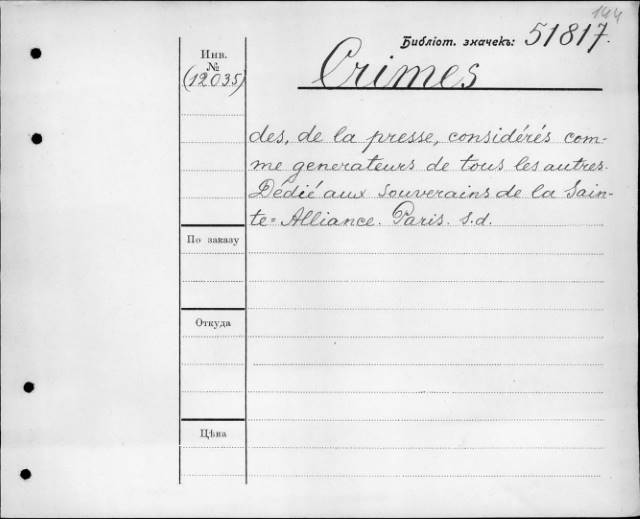 144
Библіот. значекъ: 51817.
Инв.
№
(12035)
Crimes
des, de la presse, considérés com-
me generateurs de tous les autres.
Dédié aux Souverains de la Sain-
te=Alliance. Paris. s.d.
По заказу
Откуда
Цѣна